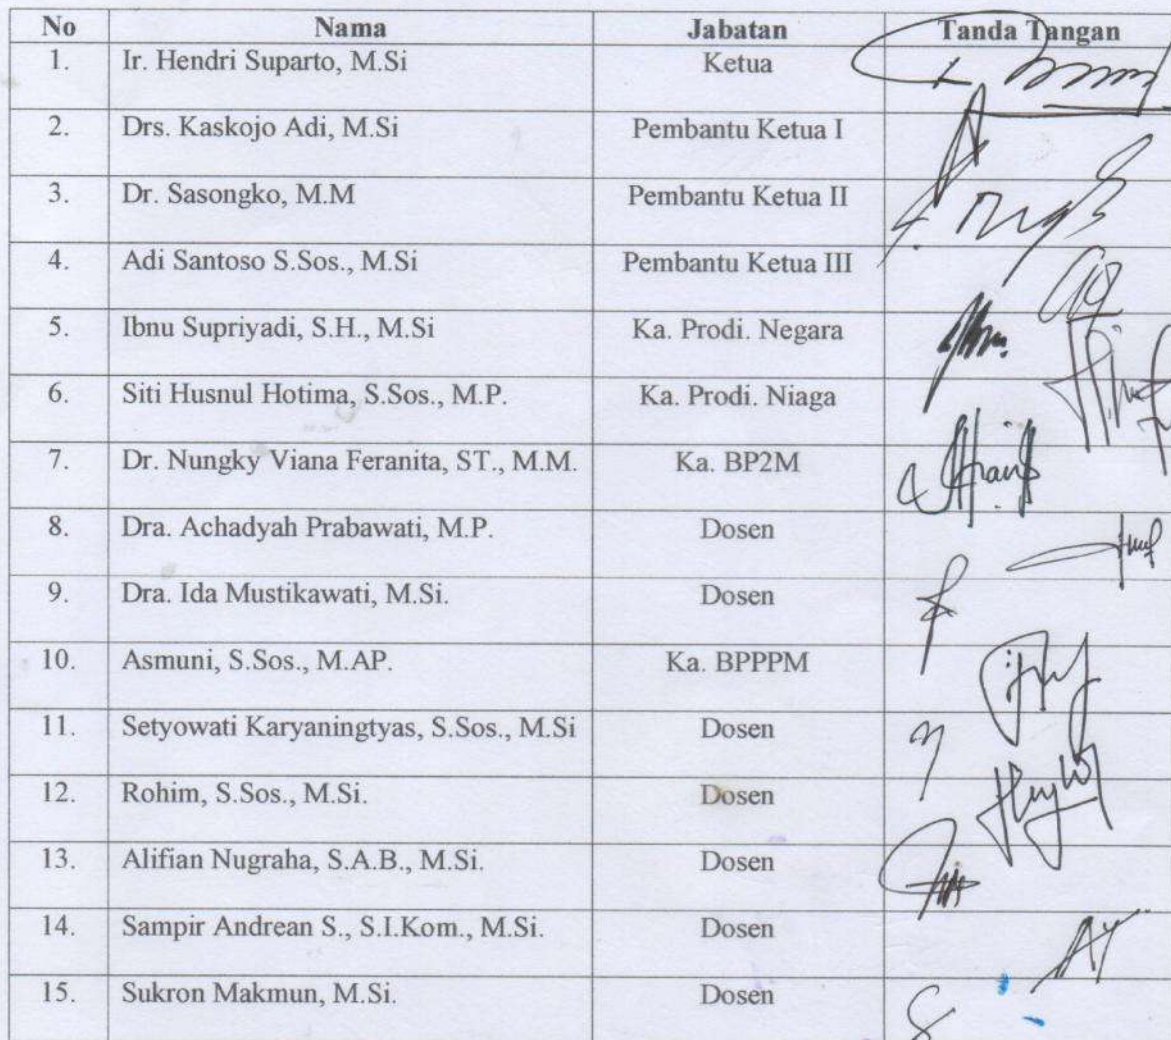 No Nama Jabatan Tanda Tangan
1. Ir. Hendri Suparto, M.Si Ketua
2. Drs. Kaskojo Adi, M.Si Pembantu Ketua I
3. Dr. Sasongko, M.M Pembantu Ketua II
4. Adi Santoso S.Sos., M.Si Pembantu Ketua III
5. Ibnu Supriyadi, S.H., M.Si Ka. Prodi. Negara
6. Siti Husnul Hotima, S.Sos., M.P. Ka. Prodi. Niaga
7. Dr. Nungky Viana Feranita, ST., M.M. Ka. BP2M
8. Dra. Achadyah Prabawati, M.P. Dosen
9. Dra. Ida Mustikawati, M.Si. Dosen
10. Asmuni, S.Sos., M.AP. Ka. BPPPM
11. Setyowati Karyaningtyas, S.Sos., M.Si Dosen
12. Rohim, S.Sos., M.Si. Dosen
13. Alifian Nugraha, S.A.B., M.Si. Dosen
14. Sampir Andrean S., S.I.Kom., M.Si. Dosen
15. Sukron Makmun, M.Si. Dosen